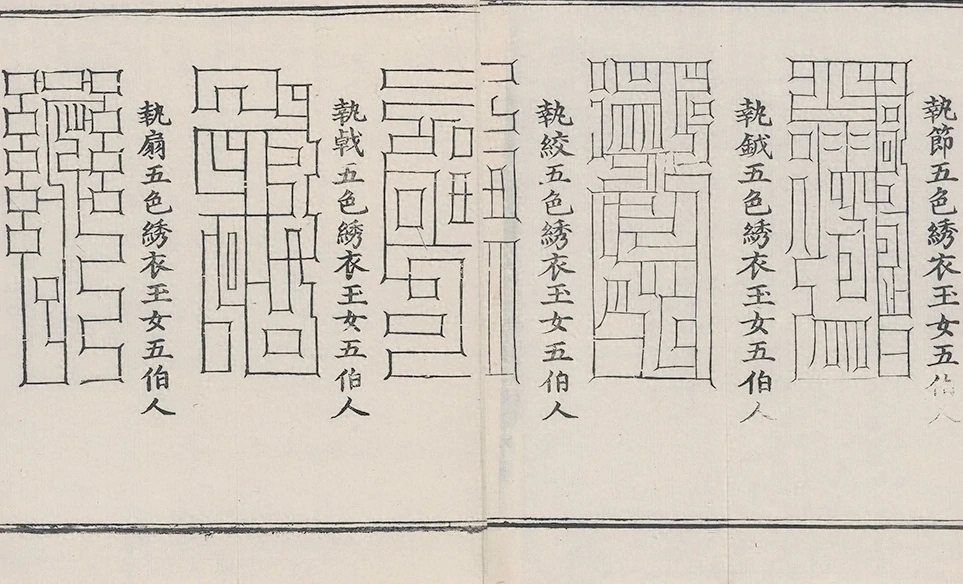 執節五色綉衣玉女五伯人
執鉞五色綉衣玉女五伯人
執絞五色綉衣玉女五伯人
執戟五色綉衣玉女五伯人
執扇五色綉衣玉女五伯人